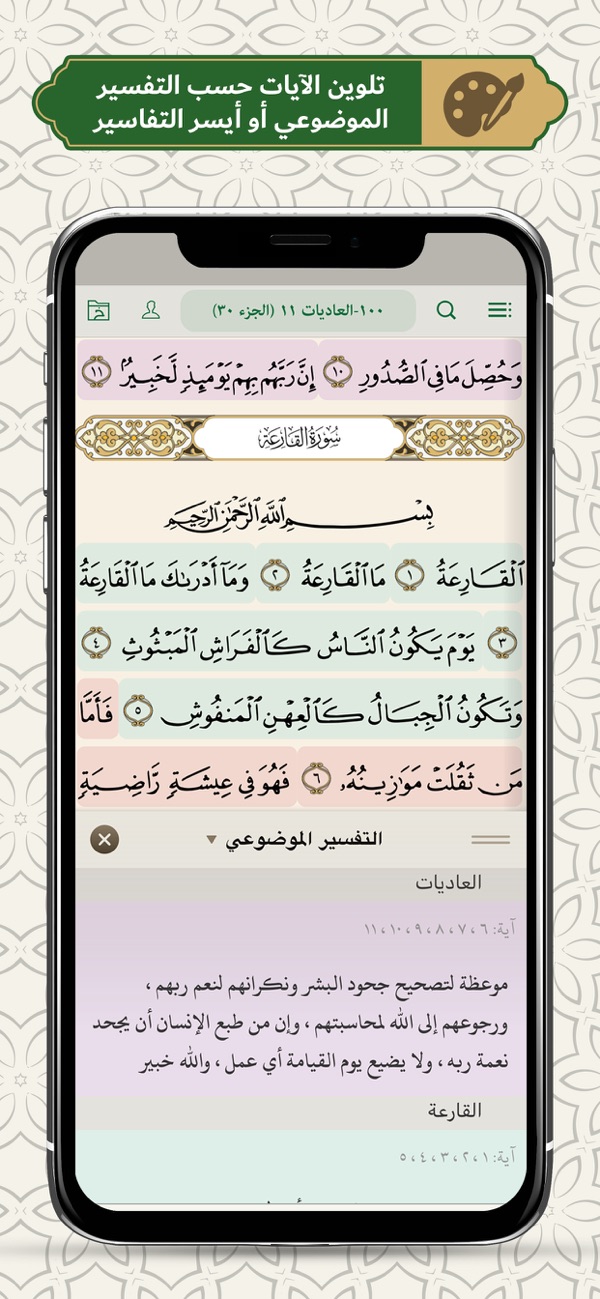 تلوين الآيات حسب التفسير
الموضوعي أو أيسر التفاسير
١٠٠-العاديات ١١ (الجزء ٣٠)
وَحُصِّلَ مَا فِي ٱلصُّدُورِ ١٠ إِنَّ رَبَّهُم بِهِمْ يَوْمَئِذٍ لَّخَبِيرٌۢ ١١
سُورَةُ القَارِعَةِ
بِسْمِ ٱللَّهِ ٱلرَّحْمَٰنِ ٱلرَّحِيمِ
ٱلْقَارِعَةُ ١ مَا ٱلْقَارِعَةُ ٢ وَمَآ أَدْرَىٰكَ مَا ٱلْقَارِعَةُ
٣ يَوْمَ يَكُونُ ٱلنَّاسُ كَٱلْفَرَاشِ ٱلْمَبْثُوثِ ٤
وَتَكُونُ ٱلْجِبَالُ كَٱلْعِهْنِ ٱلْمَنفُوشِ ٥ فَأَمَّا
مَن ثَقُلَتْ مَوَٰزِينُهُۥ ٦ فَهُوَ فِي عِيشَةٍ رَّاضِيَةٍ
التفسير الموضوعي
العاديات
آية: ٦ ،٧ ،٨ ،٩ ،١٠ ،١١
موعظة لتصحيح جحود البشر ونكرانهم لنعم ربهم ،
ورجوعهم إلى الله لمحاسبتهم ، وإن من طبع الإنسان أن يجحد
نعمة ربه ، ولا يضيع يوم القيامة أي عمل ، والله خبير
القارعة
آية: ١ ،٢ ،٣ ،٤ ،٥